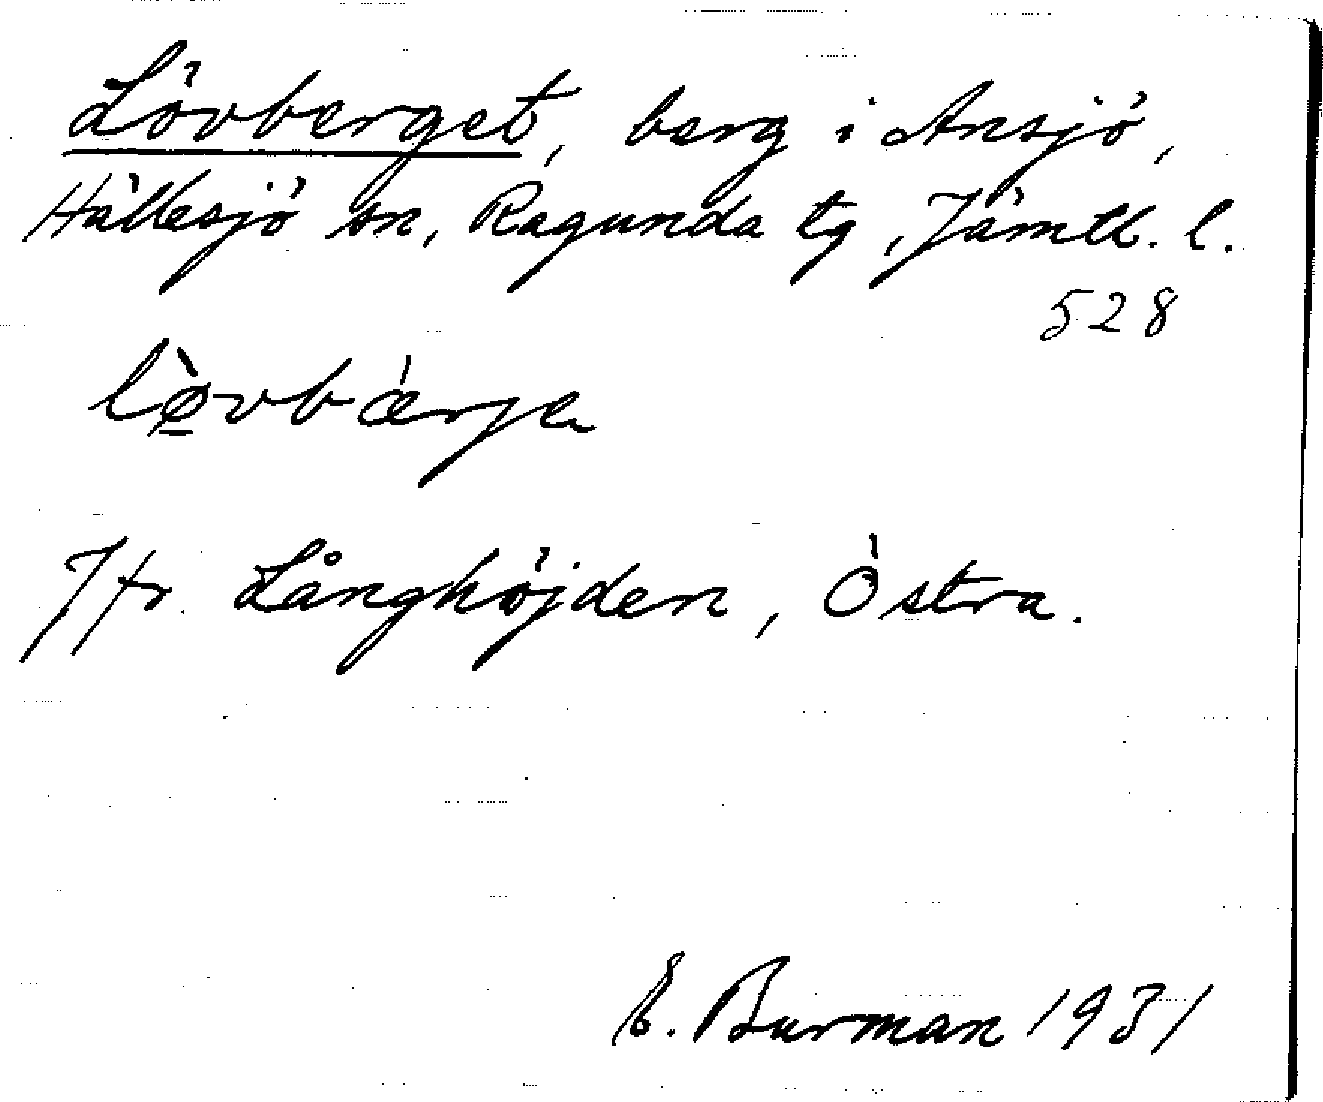 Lövberget, berg i Ansjö,
Hällesjö sn, Ragunda tg, Jämtl. l.
528
lø̀vbǽrje
Jfr. Långhöjden, Östra.
E. Burman 1931